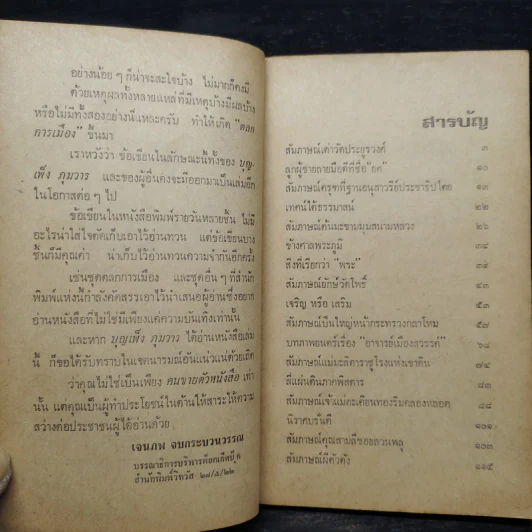 อย่างน้อย ๆ ก็น่าจะสะใจบ้าง ไม่มากก็คงมี
ด้วยเหตุผลทั้งหลายแหล่ที่มีเหตุบ้างมีผลบ้าง
หรือไม่มีทั้งสองอย่างนี่แหละครับ ทำให้เกิด "ตลก
การเมือง" ขึ้นมา
เราหวังว่า ข้อเขียนในลักษณะนี้ทั้งของ บุญ
เพ็ง ภุมวาร และของผู้อื่นคงจะมีออกมาเป็นเล่มอีก
ในโอกาสต่อ ๆ ไป
ข้อเขียนในหนังสือพิมพ์รายวันหลายชิ้น ไม่มี
อะไรน่าใส่ใจคัดเก็บเอาไว้อ่านทวน แต่ข้อเขียนบาง
ชิ้นก็มีคุณค่า น่าเก็บไว้อ่านทวนความจำกันอีกครั้ง
เช่นชุดตลกการเมือง และชุดอื่น ๆ ที่สำนัก
พิมพ์แห่งนี้กำลังคัดสรรเอาไว้นำเสนอผู้อ่านซึ่งอยาก
อ่านหนังสือที่ไม่ใช่มีเพียงแต่ความบันเทิงเท่านั้น
และหาก บุญเพ็ง ภุมวาร ได้อ่านหนังสือเล่ม
นี้ ก็ขอได้รับทราบในเจตนารมณ์อันแน่วแน่ด้วยเถิด
ว่าคุณไม่ใช่เป็นเพียง คนขายตัวหนังสือ เท่า
นั้น แต่คุณเป็นผู้ทำประโยชน์ในด้านให้สาระให้ความ
สว่างต่อประชาชนผู้ได้อ่านด้วย
เจนภพ จบกระบวนวรรณ
สำนักพิมพ์วิทวัส ๒๘/๕/๒๒
สารบัญ
สัมภาษณ์เต่าวัดประยุรวงศ์ ๓
ลูกผู้ชายลายมือดีที่ชื่อ "ยศ" ๑๐
สัมภาษณ์ครุฑที่ฐานอนุสาวรีย์ประชาธิปไตย ๑๓
เทศน์ใต้ธรรมาสน์ ๒๒
สัมภาษณ์ต้นมะขามมุมสนามหลวง ๒๖
ข้างศาลพระภูมิ ๓๔
สิ่งที่เรียกว่า "พระ" ๓๕
สัมภาษณ์ยักษ์วัดโพธิ์ ๔๓
เจริญ หรือ เสริม ๕๓
สัมภาษณ์ปืนใหญ่หน้ากระทรวงกลาโหม ๕๗
บทภาพยนตร์เรื่อง "อาจารย์เมืองสวรรค์" ๖๘
สัมภาษณ์แม่มะลิดาราชูโรงแห่งเขาดิน ๗๕
สี่แผ่นดินภาคพิสดาร ๘๓
สัมภาษณ์เจ้าแม่ตะเคียนทองริมคลองหลอด ๘๘
นิราศบรั่นดี ๑๐๑
สัมภาษณ์คุณสามสีซอยสวนพลู ๑๐๓
สัมภาษณ์ผีตัวดัง ๑๑๕